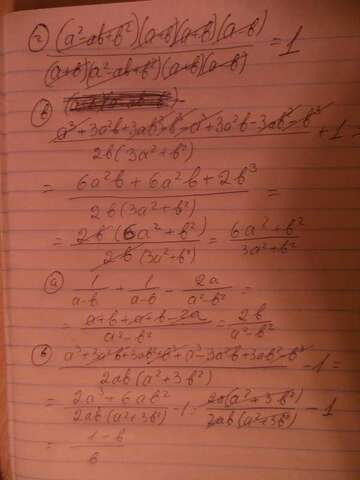 г) (a²-ab+b²)(a+b)(a+b)(a-b) / (a+b)(a²-ab+b²)(a+b)(a-b) = 1
б) a³+3a²b+3ab²+b³-a³+3a²b-3ab²+b³ / 2b(3a²+b²) + 1 -
= 6a²b+6a²b+2b³ / 2b(3a²+b²) =
= 2b(6a²+b²) / 2b(3a²+b²) = 6a²+b² / 3a²+b²
а) 1/a-b + 1/a-b - 2a/a²-b² =
= a+b+a+b-2a / a²-b² = 2b / a²-b²
в) a³+3a²b+3ab²+b³+a³-3a²b+3ab²-b³ / 2ab(a²+3b²) - 1 =
= 2a³+6ab² / 2ab(a²+3b²) - 1 = 2a(a²+3b²) / 2ab(a²+3b²) - 1
= 1-b / b